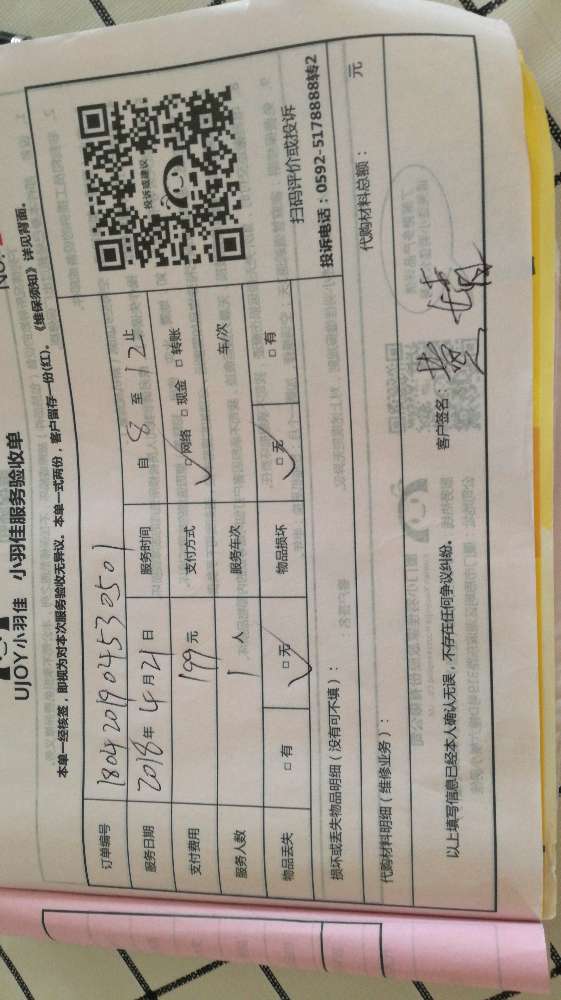 UJOY小羽佳 小羽佳服务验收单
本单一经核签，即视为对本次服务验收无异议。本单一式两份，客户留存一份(红)。《维保须知》详见背面。
订单编号 180420190453050​1
服务日期 2018年4月21日 服务时间 自8至12止
支付费用 199元 支付方式 □网络 □现金 □转账
服务人数 1人 服务车次 车/次
物品丢失 □有 □无 物品损坏 □无 □有
投诉或建议
扫码评价或投诉
投诉电话：0592-5178888转2
损坏或丢失物品明细（没有可不填）：
代购材料明细（维修业务）： 代购材料总额： 元
以上填写信息已经本人确认无误，不存在任何争议纠纷。 客户签名：